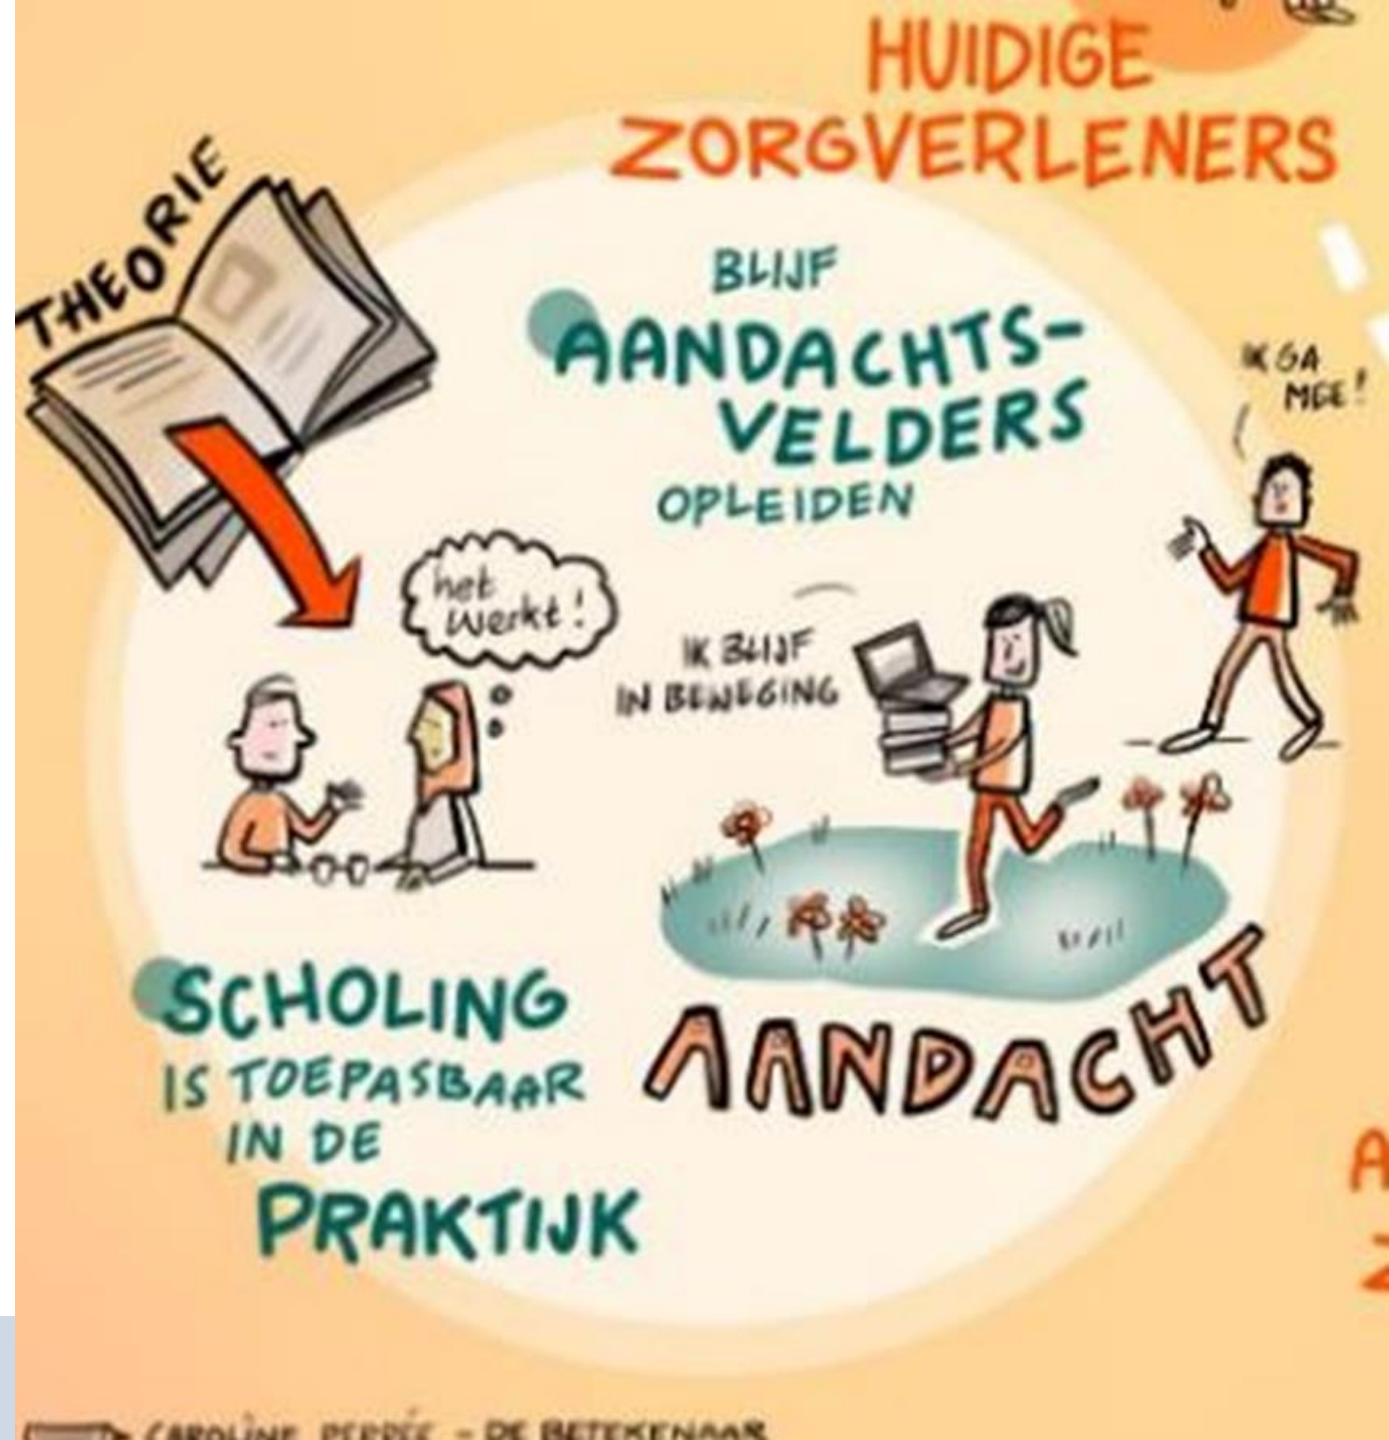 HUIDIGE
ZORGVERLENERS
THEORIE
BLIJF
AANDACHTS-
VELDERS
OPLEIDEN
IK GA
MEE!
het
werkt!
IK BLIJF
IN BEWEGING
AANDACHT
SCHOLING
IS TOEPASBAAR
IN DE
PRAKTIJK
A
Z
CAROLINE PERRÉE - DE BETEKENAAR